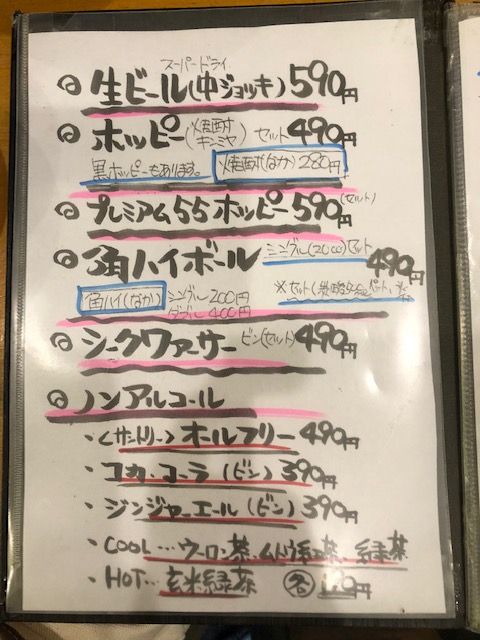 スーパードライ
生ビール(中ジョッキ) 590円
ホッピー(焼酎キンミヤ)セット 490円
黒ホッピーもあります。 焼酎(なか) 280円
プレミアム55ホッピー 590円(セット)
角ハイボール シングル(20cc)セット 490円
角ハイ(なか) シングル 200円 ダブル 400円
※セット(炭酸
シークワァーサー ビン(セット) 490円
ノンアルコール
・<サントリー>オールフリー 490円
・コカ・コーラ(ビン) 390円
・ジンジャーエール(ビン) 390円
・COOL…ウーロン茶、ムトウ紅茶、緑茶
・HOT…玄米緑茶 各